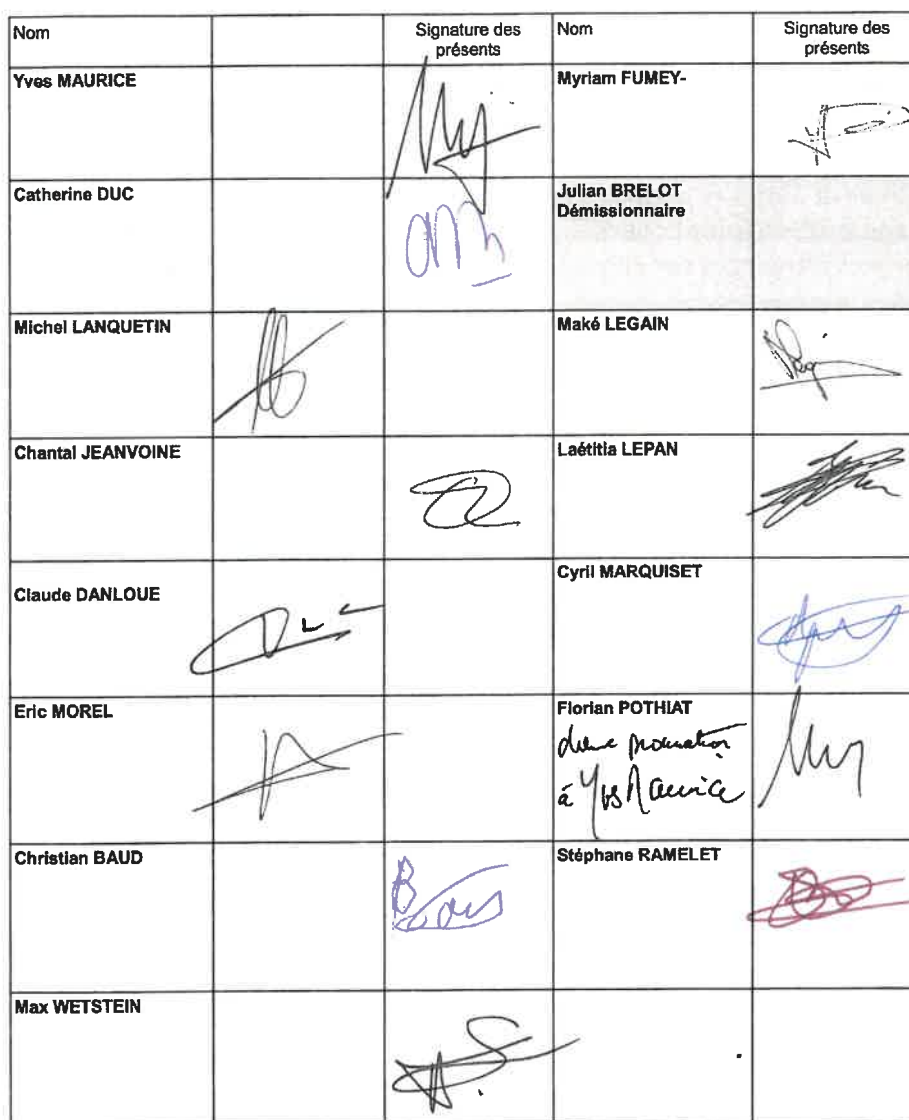 Nom Signature des Nom Signature des
présents présents
Yves MAURICE Myriam FUMEY-
Catherine DUC Julian BRELOT
Démissionnaire
Michel LANQUETIN Maké LEGAIN
Chantal JEANVOINE Laétitia LEPAN
Claude DANLOUE Cyril MARQUISET
Eric MOREL Florian POTHIAT
donne procuration
à Yves Maurice
Christian BAUD Stéphane RAMELET
Max WETSTEIN